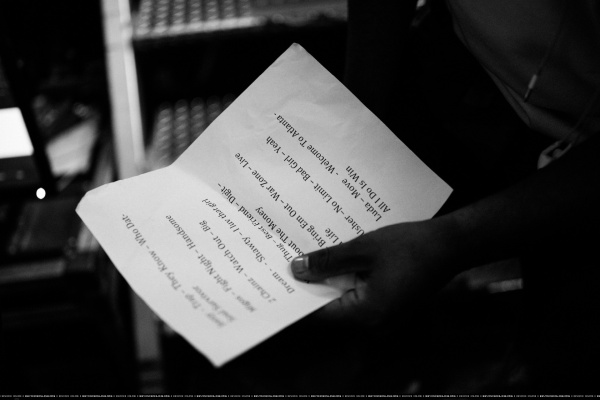 Jeezy - Trap - They Know - Who Dat-
Soul Survivor
Migos - Fight Night - Handsome
2 Chainz - Watch Out - Big
Dream - Shawty - I luv that girl
Thug - Best Friend - Digit -
bout The Money
Bring Em Out - War Zone - Live
Life
Usher - No Limit - Bad Girl - Yeah
Luda - Move - Welcome To Atlanta -
All I Do Is Win